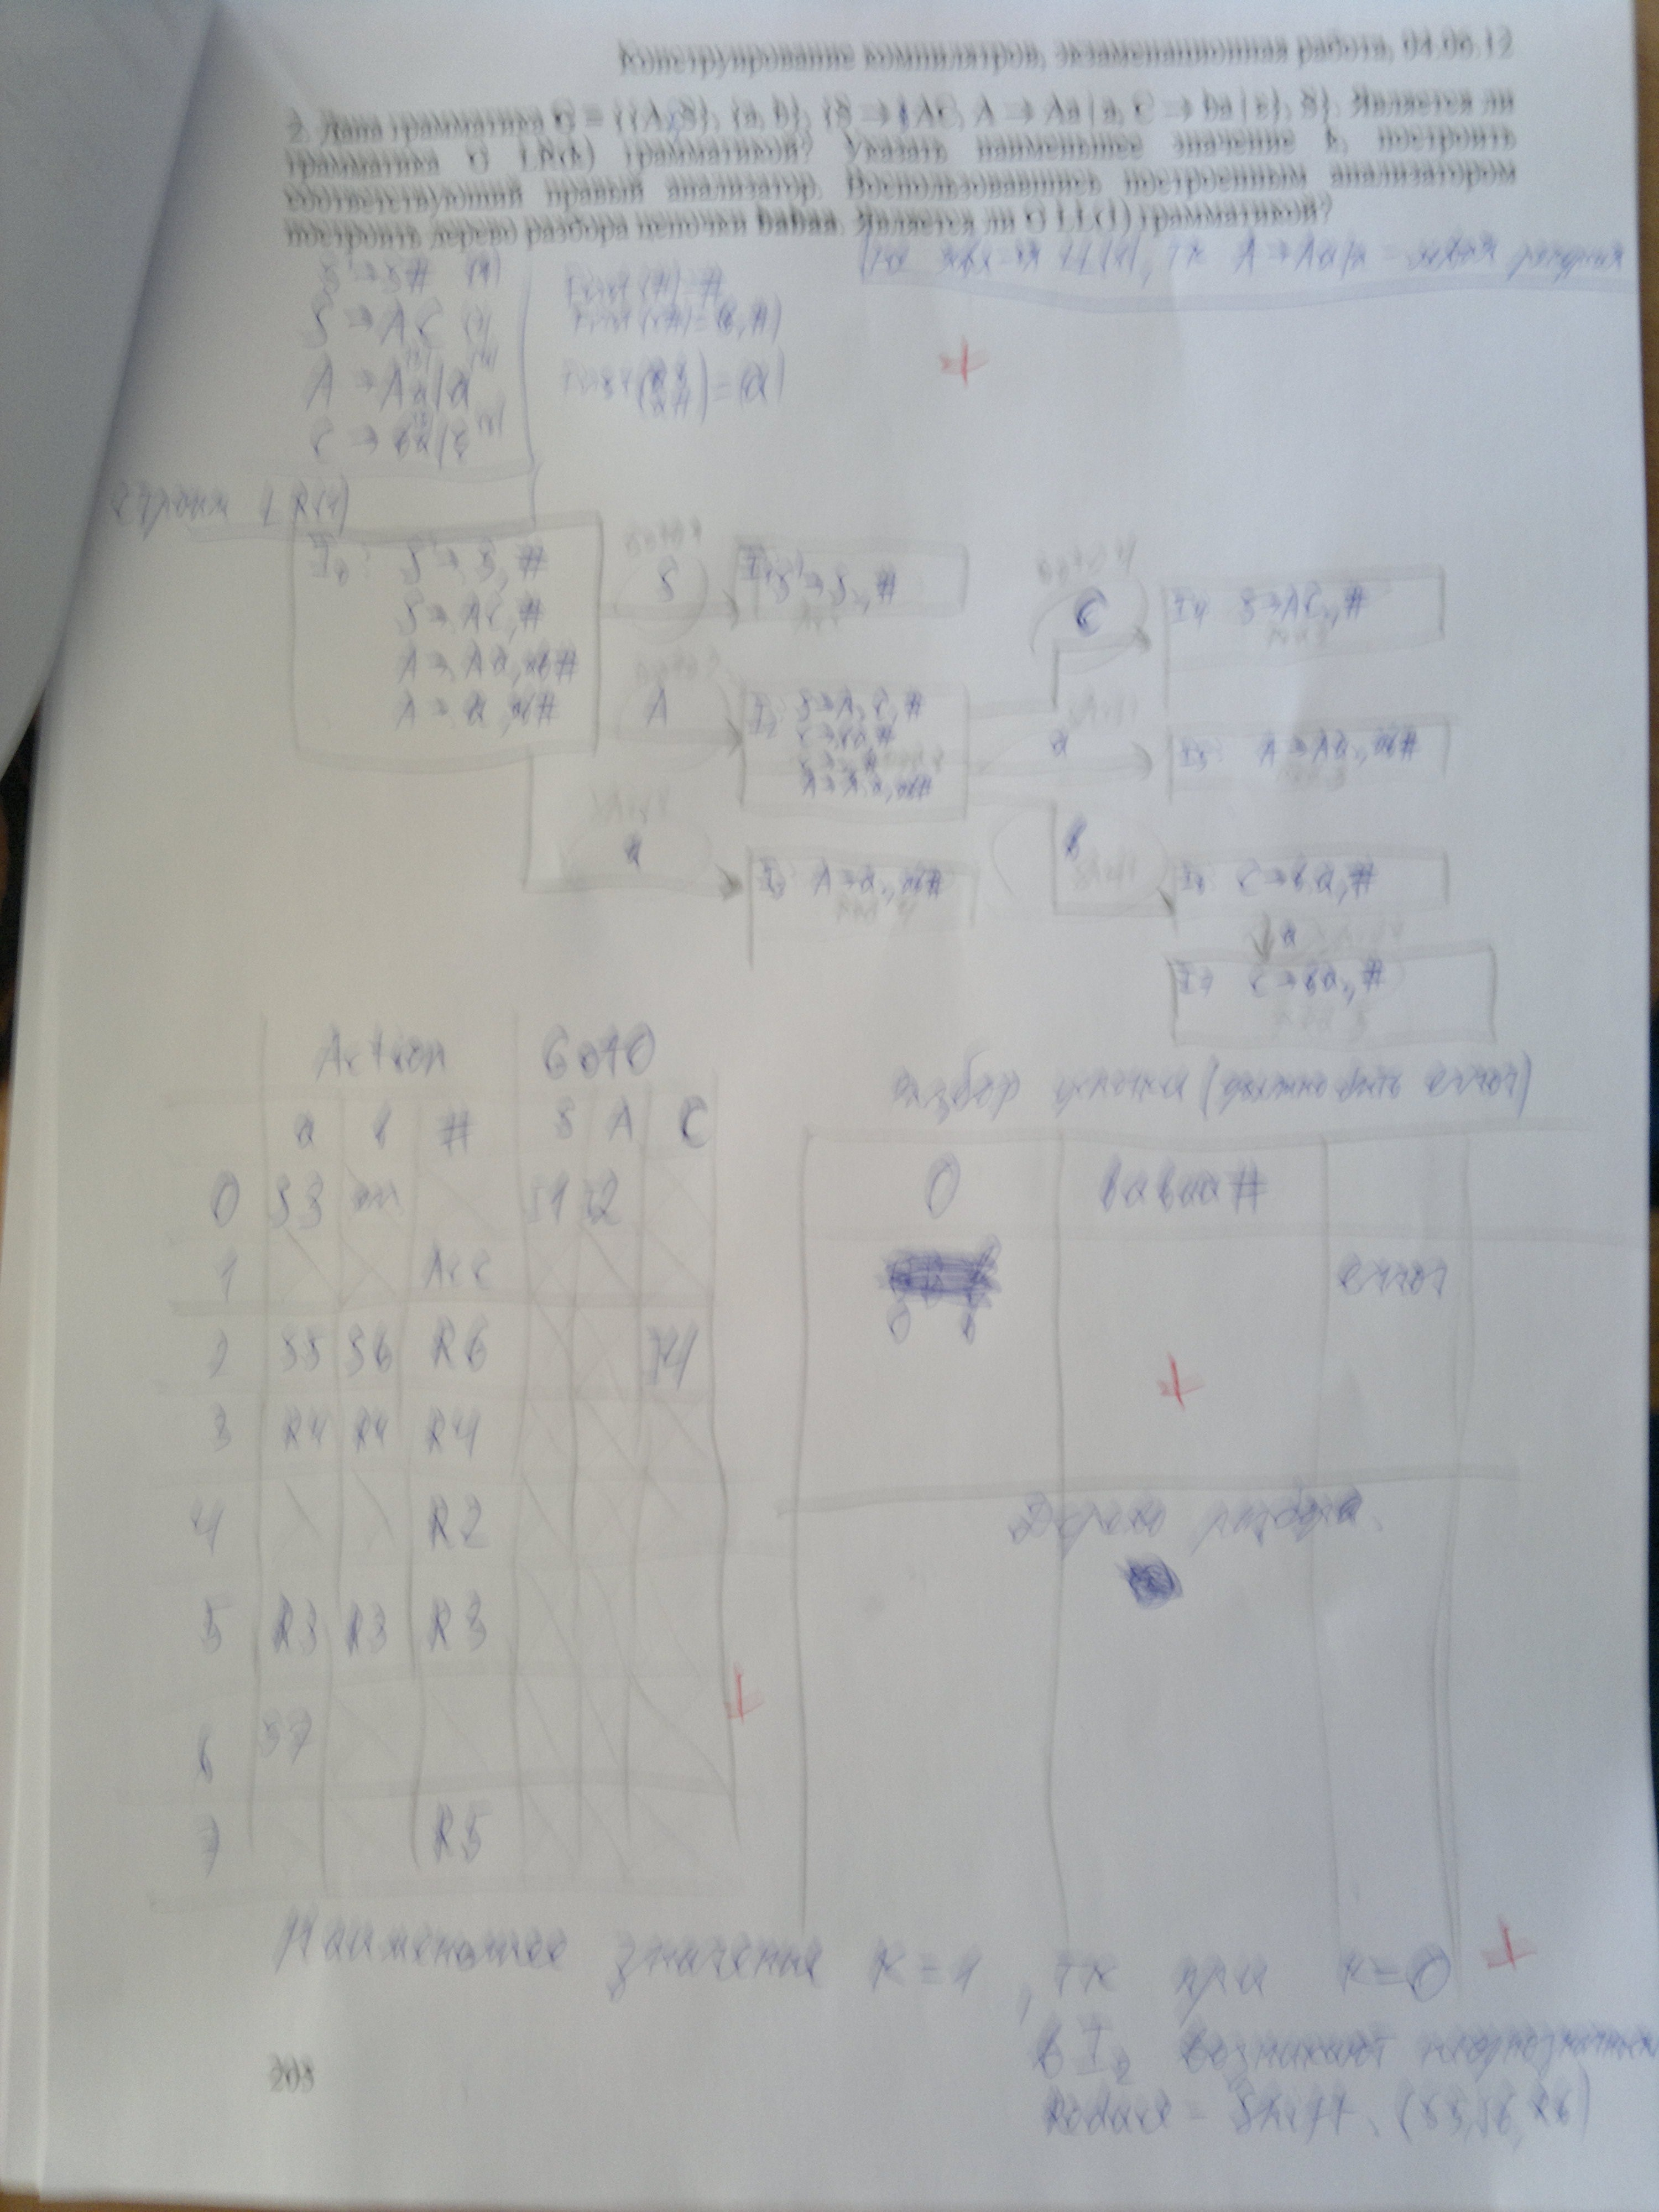 Конструирование компиляторов, экзаменационная работа, 04.06.12
2. Дана грамматика G = ({A, S}, {a, b}, {S → AC, A → Aa | a, C → ba | ε}, S). Является ли
грамматика G LR(k) грамматикой? Указать наименьшее значение k, построить
соответствующий правый анализатор. Воспользовавшись построенным анализатором
построить дерево разбора цепочки babaa. Является ли G LL(1) грамматикой?
S' → S# (1)
S → AC (2)
A → Aa | a
C → ba | ε
First(#) = #
Строим LR(1)
I0: S' → .S, #
S → .AC, #
A → .Aa, ab#
A → .a, ab#
S
I1: S' → S., #
A
I2: S → A.C, #
C → .ba, #
C → ., #
A → A.a, ab#
a
I3: A → a., ab#
C
I4: S → AC., #
a
I5: A → Aa., ab#
b
I6: C → b.a, #
a
I7: C → ba., #
Action GOTO
a b # S A C
0 S3 err 1 2
1 Acc
2 S5 S6 R6 4
3 R4 R4 R4
4 R2
5 R3 R3 R3
6 S7
7 R5
разбор цепочки (должно быть error)
0 babaa#
error
0 b
Дерево разбора.
Наименьшее значение k=1, тк при k=0
в I2 возникают
Reduce - Shift.